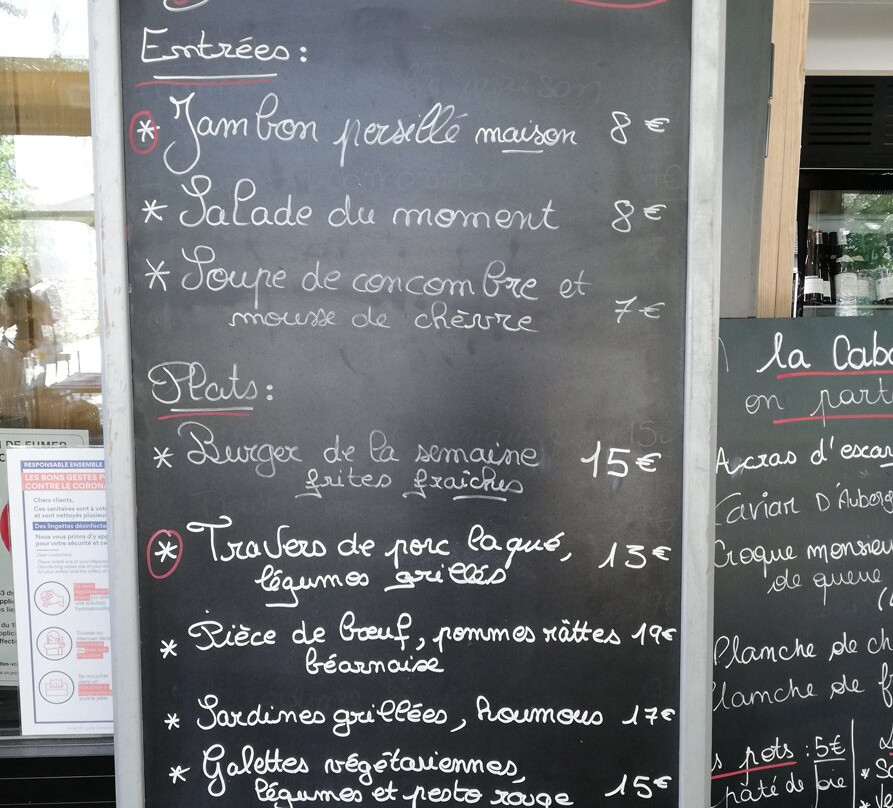 Entrées :
* Jambon persillé maison 8 €
* Salade du moment 8 €
* Soupe de concombre et
mousse de chèvre 7 €
Plats :
* Burger de la semaine 15 €
frites fraîches
* Travers de porc laqué, 13 €
légumes grillés
* Pièce de bœuf, pommes râttes 19 €
béarnaise
* Sardines grillées, houmous 17 €
* Galettes végétariennes,
légumes et pesto rouge 15 €
la
en
Acras
Caviar
Croque
de queue
Planche de
Planche de
pots : 5€
pâté de
DE FUMER
RESPONSABLE ENSEMBLE
LES BONS GESTES
CONTRE LE
Chers clients,
Ces sanitaires sont à
et sont nettoyés
Des lingettes
Nous vous prions
pour votre sécurité et